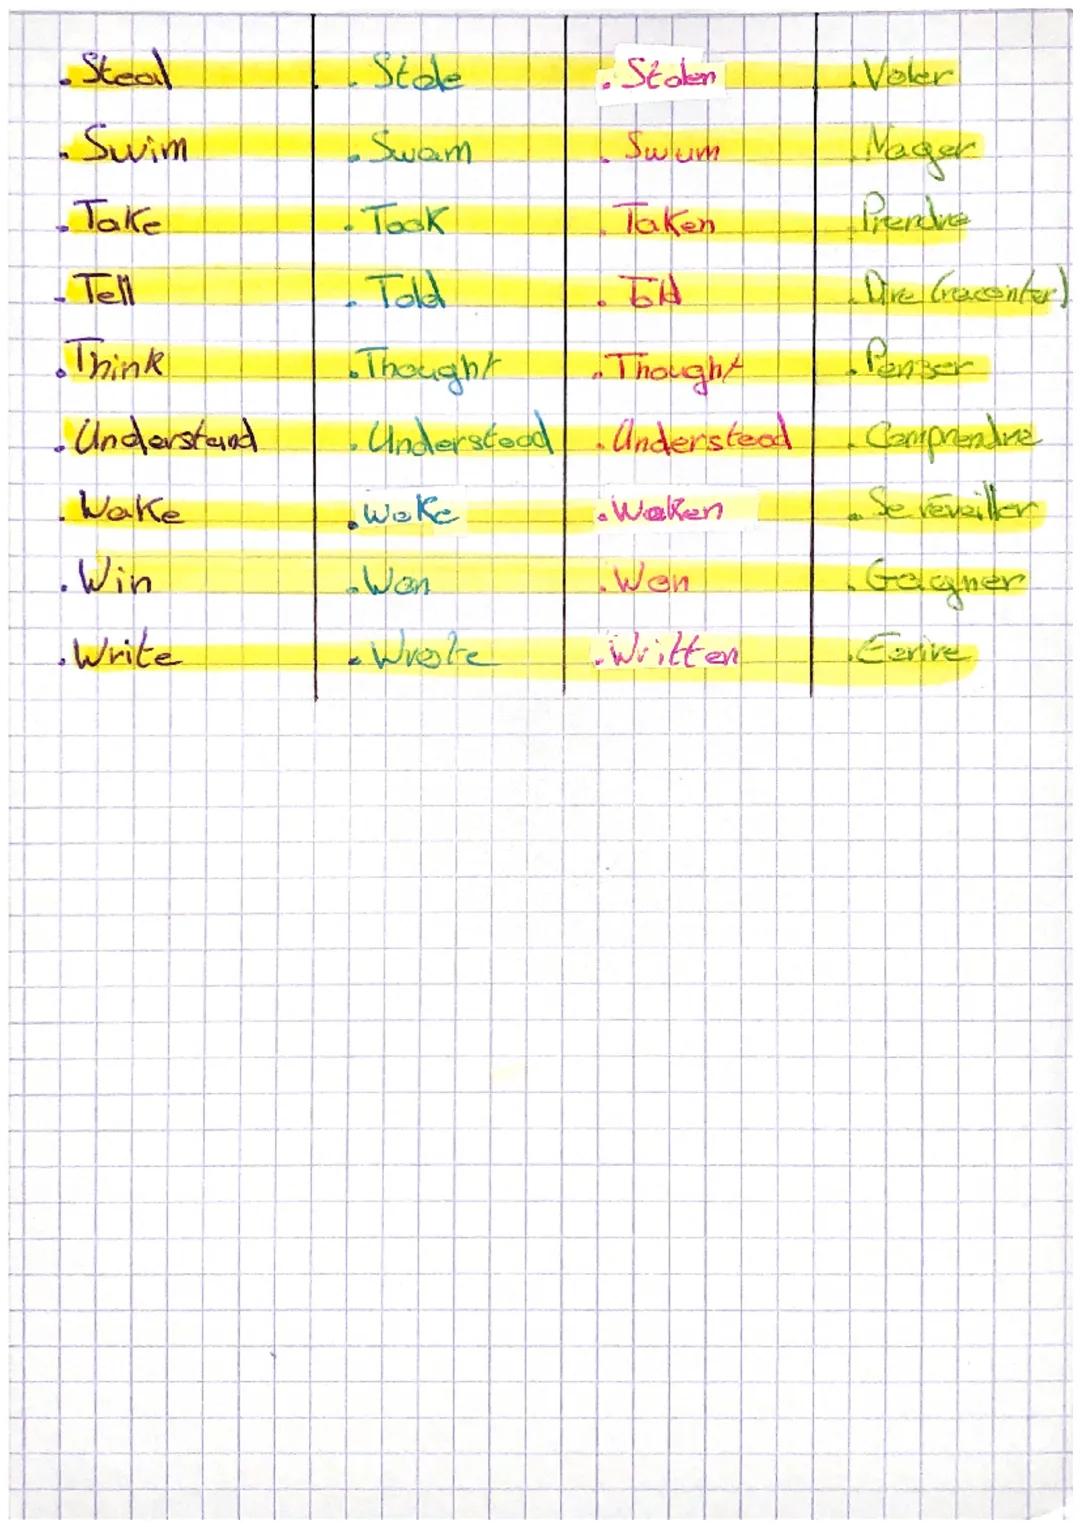 . Steal . Stole . Stolen . Voler
. Swim . Swam . Swum . Nager
. Take . Took . Taken . Prendre
. Tell . Told . Told . Dire (raconter)
. Think . Thought . Thought . Penser
. Understand . Understood . Understood . Comprendre
. Wake . Woke . Woken . Se réveiller
. Win . Won . Won . Gagner
. Write . Wrote . Written . Ecrire